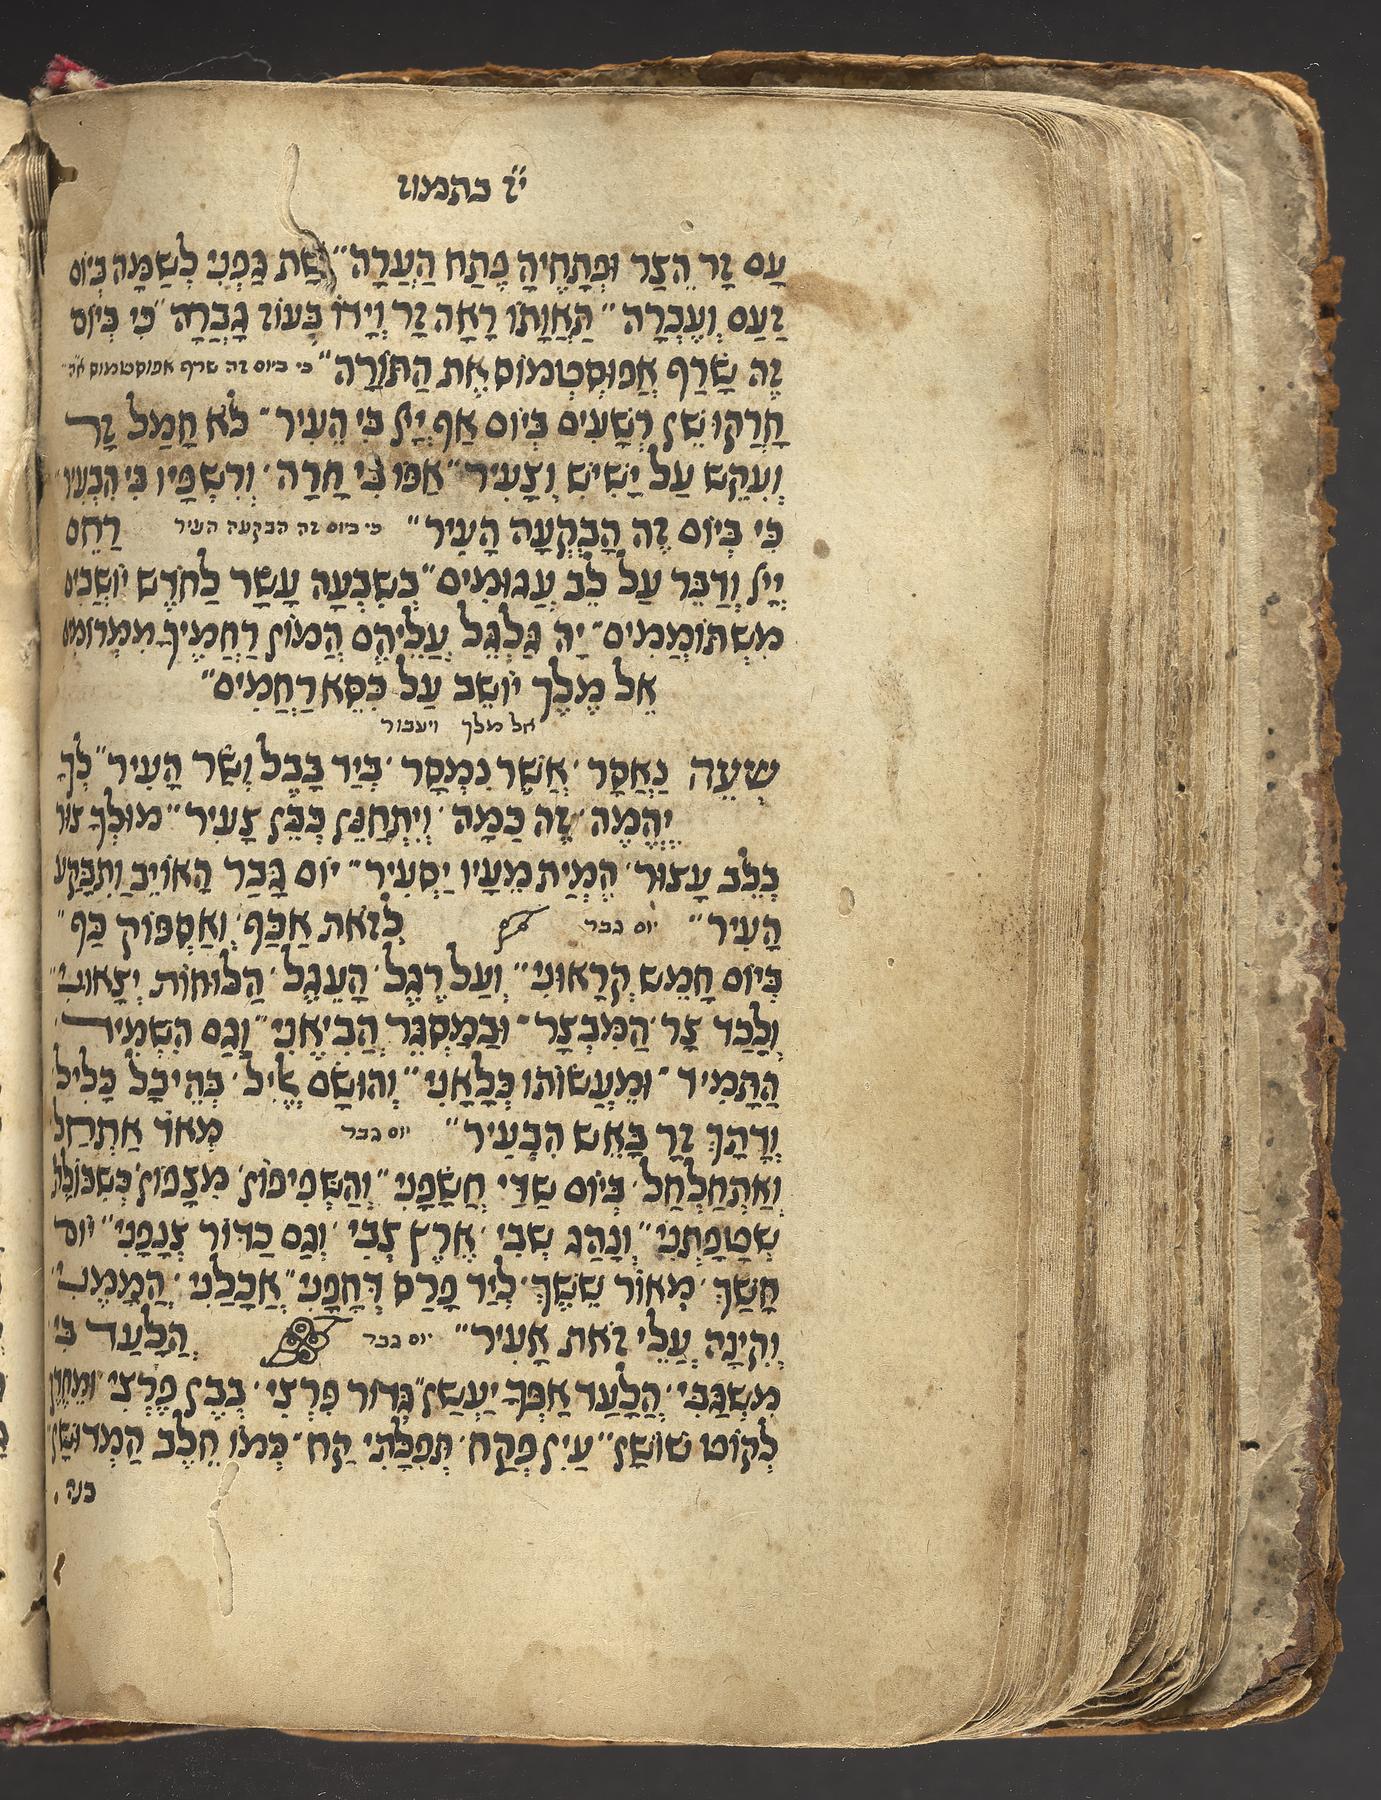 י״ז בתמוז
עַם זָר הֵצַר וּפְתָחֶיהָ פֶּתַח הַעֲרָה״ שַׁת גַּפְנִי לְשַׁמָּה בְּיוֹם
זַעַם וְעֶבְרָה״ תַּאֲוָתוֹ רָאָה זָר וְיָדוֹ בְּעוֹז גָּבְרָה״ כִּי בְּיוֹם
זֶה שָׂרַף אֲפוֹסְטְמוֹס אֶת הַתּוֹרָה״ כי ביום זה שרף אפוסטמוס
חָרְקוּ שֵׁן רְשָׁעִים בְּיוֹם אַף יְיָ כִּי הֵעִיר״ לֹא חָמַל זָר
וְעִקֵּשׁ עַל יָשִׁישׁ וְצָעִיר״ אַפּוֹ כִּי חָרָה׳ וְרִשְׁפָּיו כִּי הִבְעִיר
כִּי בְּיוֹם זֶה הָבְקְעָה הָעִיר״ כי ביום זה הבקעה העיר רַחֵם
יְיָ וְדַבֵּר עַל לֵב עֲגוּמִים״ בְּשִׁבְעָה עָשָׂר לַחֹדֶשׁ יוֹשְׁבִים
מִשְׁתּוֹמְמִים״ יָהּ גַּלְגֵּל עֲלֵיהֶם הֲמוֹן רַחֲמֶיךָ מִמְּרוֹמִים
אֵל מֶלֶךְ יוֹשֵׁב עַל כִּסֵּא רַחֲמִים״
אל מלך ויעבור
שְׁעֵה נֶאֱסָר׳ אֲשֶׁר נִמְסָר׳ בְּיַד בָּבֶל וְשֵׂר הָעִיר״ לְךָ
יֶהֱמֶה׳ זֶה כַּמָּה׳ וְיִתְחַנֵּן כְּבֵן צָעִיר״
כְּלֵב עָצוּר׳ הֶמְיַת מֵעָיו יַסְעִיר״ יוֹם גָּבַר הָאוֹיֵב וַתִּבָּקַע
הָעִיר״ יום גבר לְזֹאת אִכַּף׳ וְאֶסְפּוֹק כַּף״
בְּיוֹם חָמֵשׁ קְרָאוּנִי״ וְעַל רֶגֶל׳ הָעֵגֶל׳ הַלּוּחוֹת יְצָאוּנִי״
וְלָכַד צָר׳ הַמִּבְצָר״ וּבְמַסְגֵּר הֱבִיאֵנִי״ וְגַם הִשְׁמִיד׳
הַתָּמִיד״ וּמֵעֲשׂוֹתוֹ כְּלָאָנִי״ וְהוּשַׂם אֱלִיל׳ בְּהֵיכַל כָּלִיל׳
וְדָתָךְ זָר בָּאֵשׁ הִבְעִיר״ יום גבר מְאֹד אֶתְחַל׳
וָאֶתְחַלְחַל׳ בְּיוֹם שַׁדַּי חֲשָׂפָנִי״ וְהַשְּׁפִיפוֹן׳ מִצָּפוֹן׳ כְּשִׁבּוֹלֶת
שְׁטָפַתְנִי״ וְנָהַג שְׁבִי׳ אֶרֶץ צְבִי׳ וְגַם כַּדּוּר צְנָפָנִי״ יוֹם
חָשַׁךְ׳ מְאוֹר שֵׁשַׁךְ׳ לְיַד פָּרַס דְּחָפַנִי״ אֲכָלַנִי׳ הֲמָמַנִי׳
וְקִינָה עָלַי זֹאת אָעִיר״ יום גבר הֲלָעַד כִּי
מִשְׂגַּבִּי׳ הֲלָעַד אַפְּךָ יֶעְשַׁן״ גְּדוֹר פִּרְצִי׳ בְּבֶן פַּרְצִי׳
לְקוֹט שׁוֹשָׁן״ עַיִן פְּקַח׳ תְּפִלָּתִי קַח״ כְּמוֹ חֵלֶב הַמְדוּשָּׁן
בנה